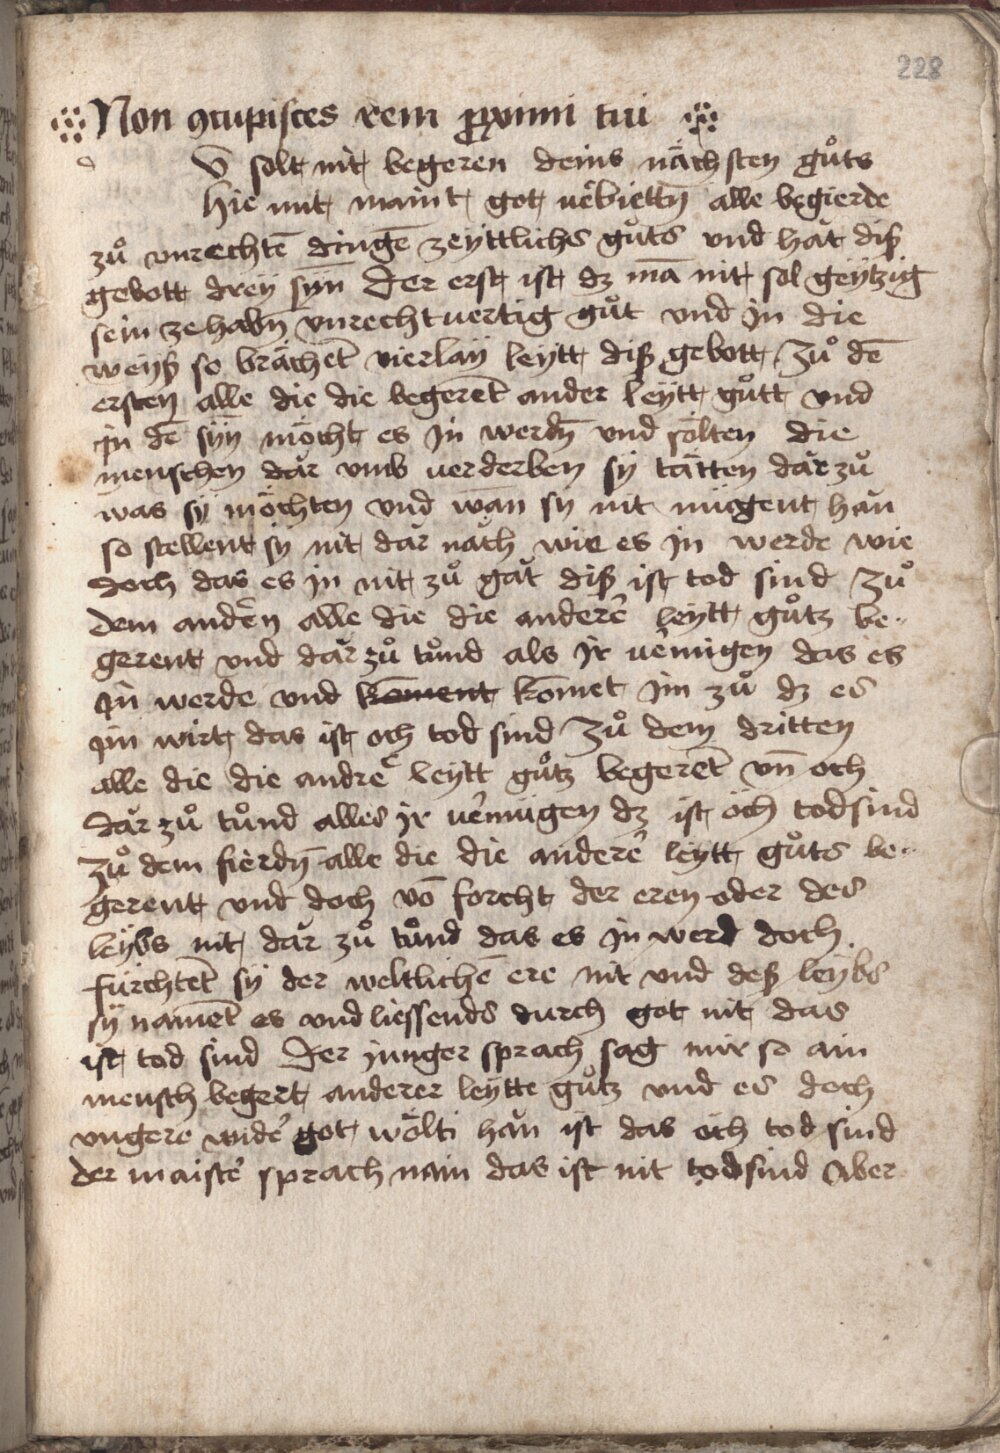 228
Non ꝯcupisces rem ꝓximi tui
d v̄ solt nit begeren deins nächsten gůts
Hie mit maint got v̾biettn̄ alle begierde
zů vnrechtē dingē zeyttlichs gůts vnd hăt diß
gebott dreÿ sÿn̄ Der erst ist dz mā nit sol geÿtzig
sein ze habn̄ vnrechtuertig gůt vnd jn die
weÿß so brăchet̄ vierlaÿ leÿtt diß gebott Zů dē
ersten alle die die begeret̄ ander leÿtt gůtt vnd
jn dē sÿn̄ möcht es jn werdn̄ vnd sölten die
menschen dăr vmb verderben sÿ tätten dăr zů
was sÿ möchten vnd wan̄ sy nit mügent hăn
so stellent sy nit dăr năch wie es jn werde wie
doch das es jn nit zů găt diß ist tod sind Zů
dem andern̾ alle die die andere̾ leÿtt gůtz be-
gerent vnd dăr zů tůnd als jr v̾mügen das es
jn werde vnd kom̄ent kom̄et jm zů dz es
jm wirt das ist och tod sind Zů dem dritten
alle die die andre̾ leÿtt gůtz begeret̄ vn̄ och
dăr zů tůnd alles jr v̾mügen dz ist öch todsind
Zů dem fierdn̄ alle die die andere̾ leÿtt gůts be-
gerent vnd doch vō forcht der eren oder des
leÿbs nit dăr zů tůnd das es jn werd doch
fürchtet̄ sÿ der weltlichē ere nit vnd deß leÿbs
sÿ namet̄ es vnd liessends durch got nit das
ist tod sind Der junger sprach sag mir so ain
mensch begert anderer leÿtte gůtz vnd es doch
vngere wide̾ got wölti hăn ist das öch tod sind
der maiste̾ sprach nain das ist nit todsind Aber